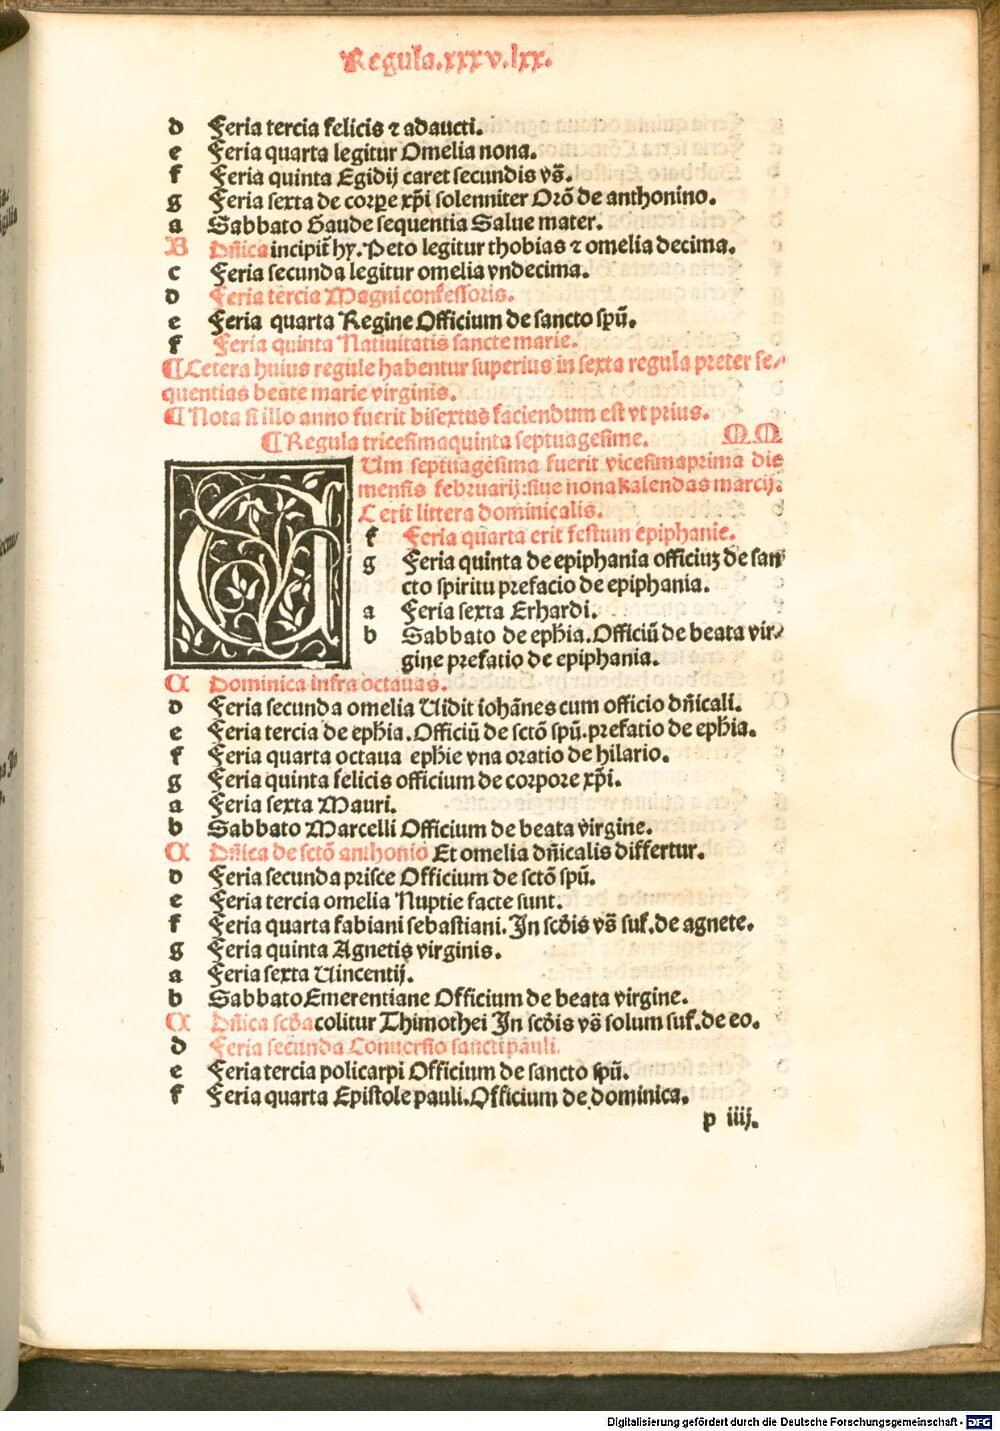 Regula.xxxv.lxx.
d Feria tercia felicis ⁊ adaucti.
e Feria quarta legitur Omelia nona.
f Feria quinta Egidij caret secundis vs̄.
g Feria sexta de corpe xp̄i solenniter Orō de anthonino.
a Sabbato Gaude sequentia Salue mater.
B Dn̄ica incipit̄ hy. Peto legitur thobias ⁊ omelia decima.
c Feria secunda legitur omelia vndecima.
d Feria tercia Magni confessoris.
e Feria quarta Regine Officium de sancto spū.
f Feria quinta Natiuitatis sancte marie.
¶ Cetera huius regule habentur superius in sexta regula preter se⸗
quentias beate marie virginis.
¶ Nota si illo anno fuerit bisextus faciendum est vt prius.
¶ Regula tricesimaquinta septuagesime. M.M.
CUm septuagesima fuerit vicesimaprima die
mensis februarij: siue nona kalendas marcij.
C erit littera dominicalis.
f Feria quarta erit festum epiphanie.
g Feria quinta de epiphania officiuʒ de san
cto spiritu prefacio de epiphania.
a Feria sexta Erhardi.
b Sabbato de ephīa. Officiū de beata vir⸗
gine prefatio de epiphania.
C Dominica infra octauas.
d Feria secunda omelia Uidit iohānes cum officio dn̄icali.
e Feria tercia de ephīa. Officiū de sctō spū. prefatio de ephīa.
f Feria quarta octaua ephīe vna oratio de hilario.
g Feria quinta felicis officium de corpore xp̄i.
a Feria sexta Mauri.
b Sabbato Marcelli Officium de beata virgine.
C Dn̄ica de sctō anthonio Et omelia dn̄icalis differtur.
d Feria secunda prisce Officium de sctō spū.
e Feria tercia omelia Nuptie facte sunt.
f Feria quarta fabiani sebastiani. In scd̄is vs̄ suf. de agnete.
g Feria quinta Agnetis virginis.
a Feria sexta Uincentij.
b Sabbato Emerentiane Officium de beata virgine.
C Dn̄ica scd̄a colitur Thimothei In scd̄is vs̄ solum suf. de eo.
d Feria secunda Conuersio sancti pauli.
e Feria tercia policarpi Officium de sancto spū.
f Feria quarta Epistole pauli. Officium de dominica.
p iiij.
Digitalisierung gefördert durch die Deutsche Forschungsgemeinschaft - DFG